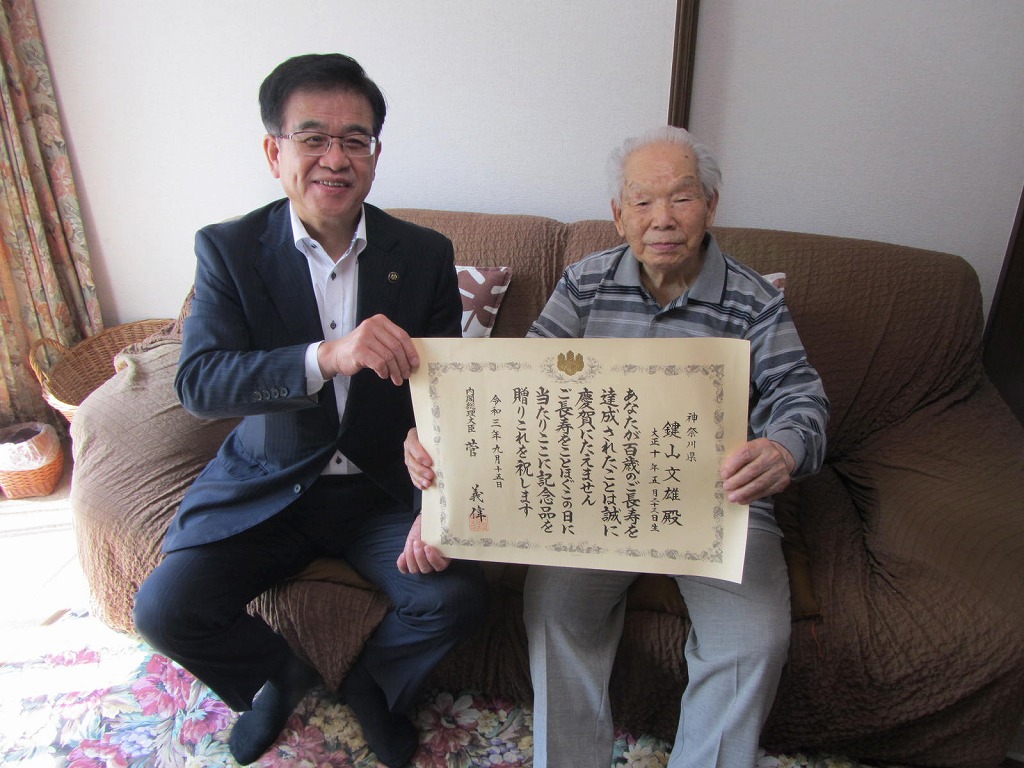 神奈川県
鍵山文雄殿
大正十年五月二十三日生
あなたが百歳のご長寿を
達成されたことは誠に
慶賀にたえません
ご長寿をことほぐこの日に
当たりここに記念品を
贈りこれを祝します
令和三年九月十五日
内閣総理大臣 菅 義偉